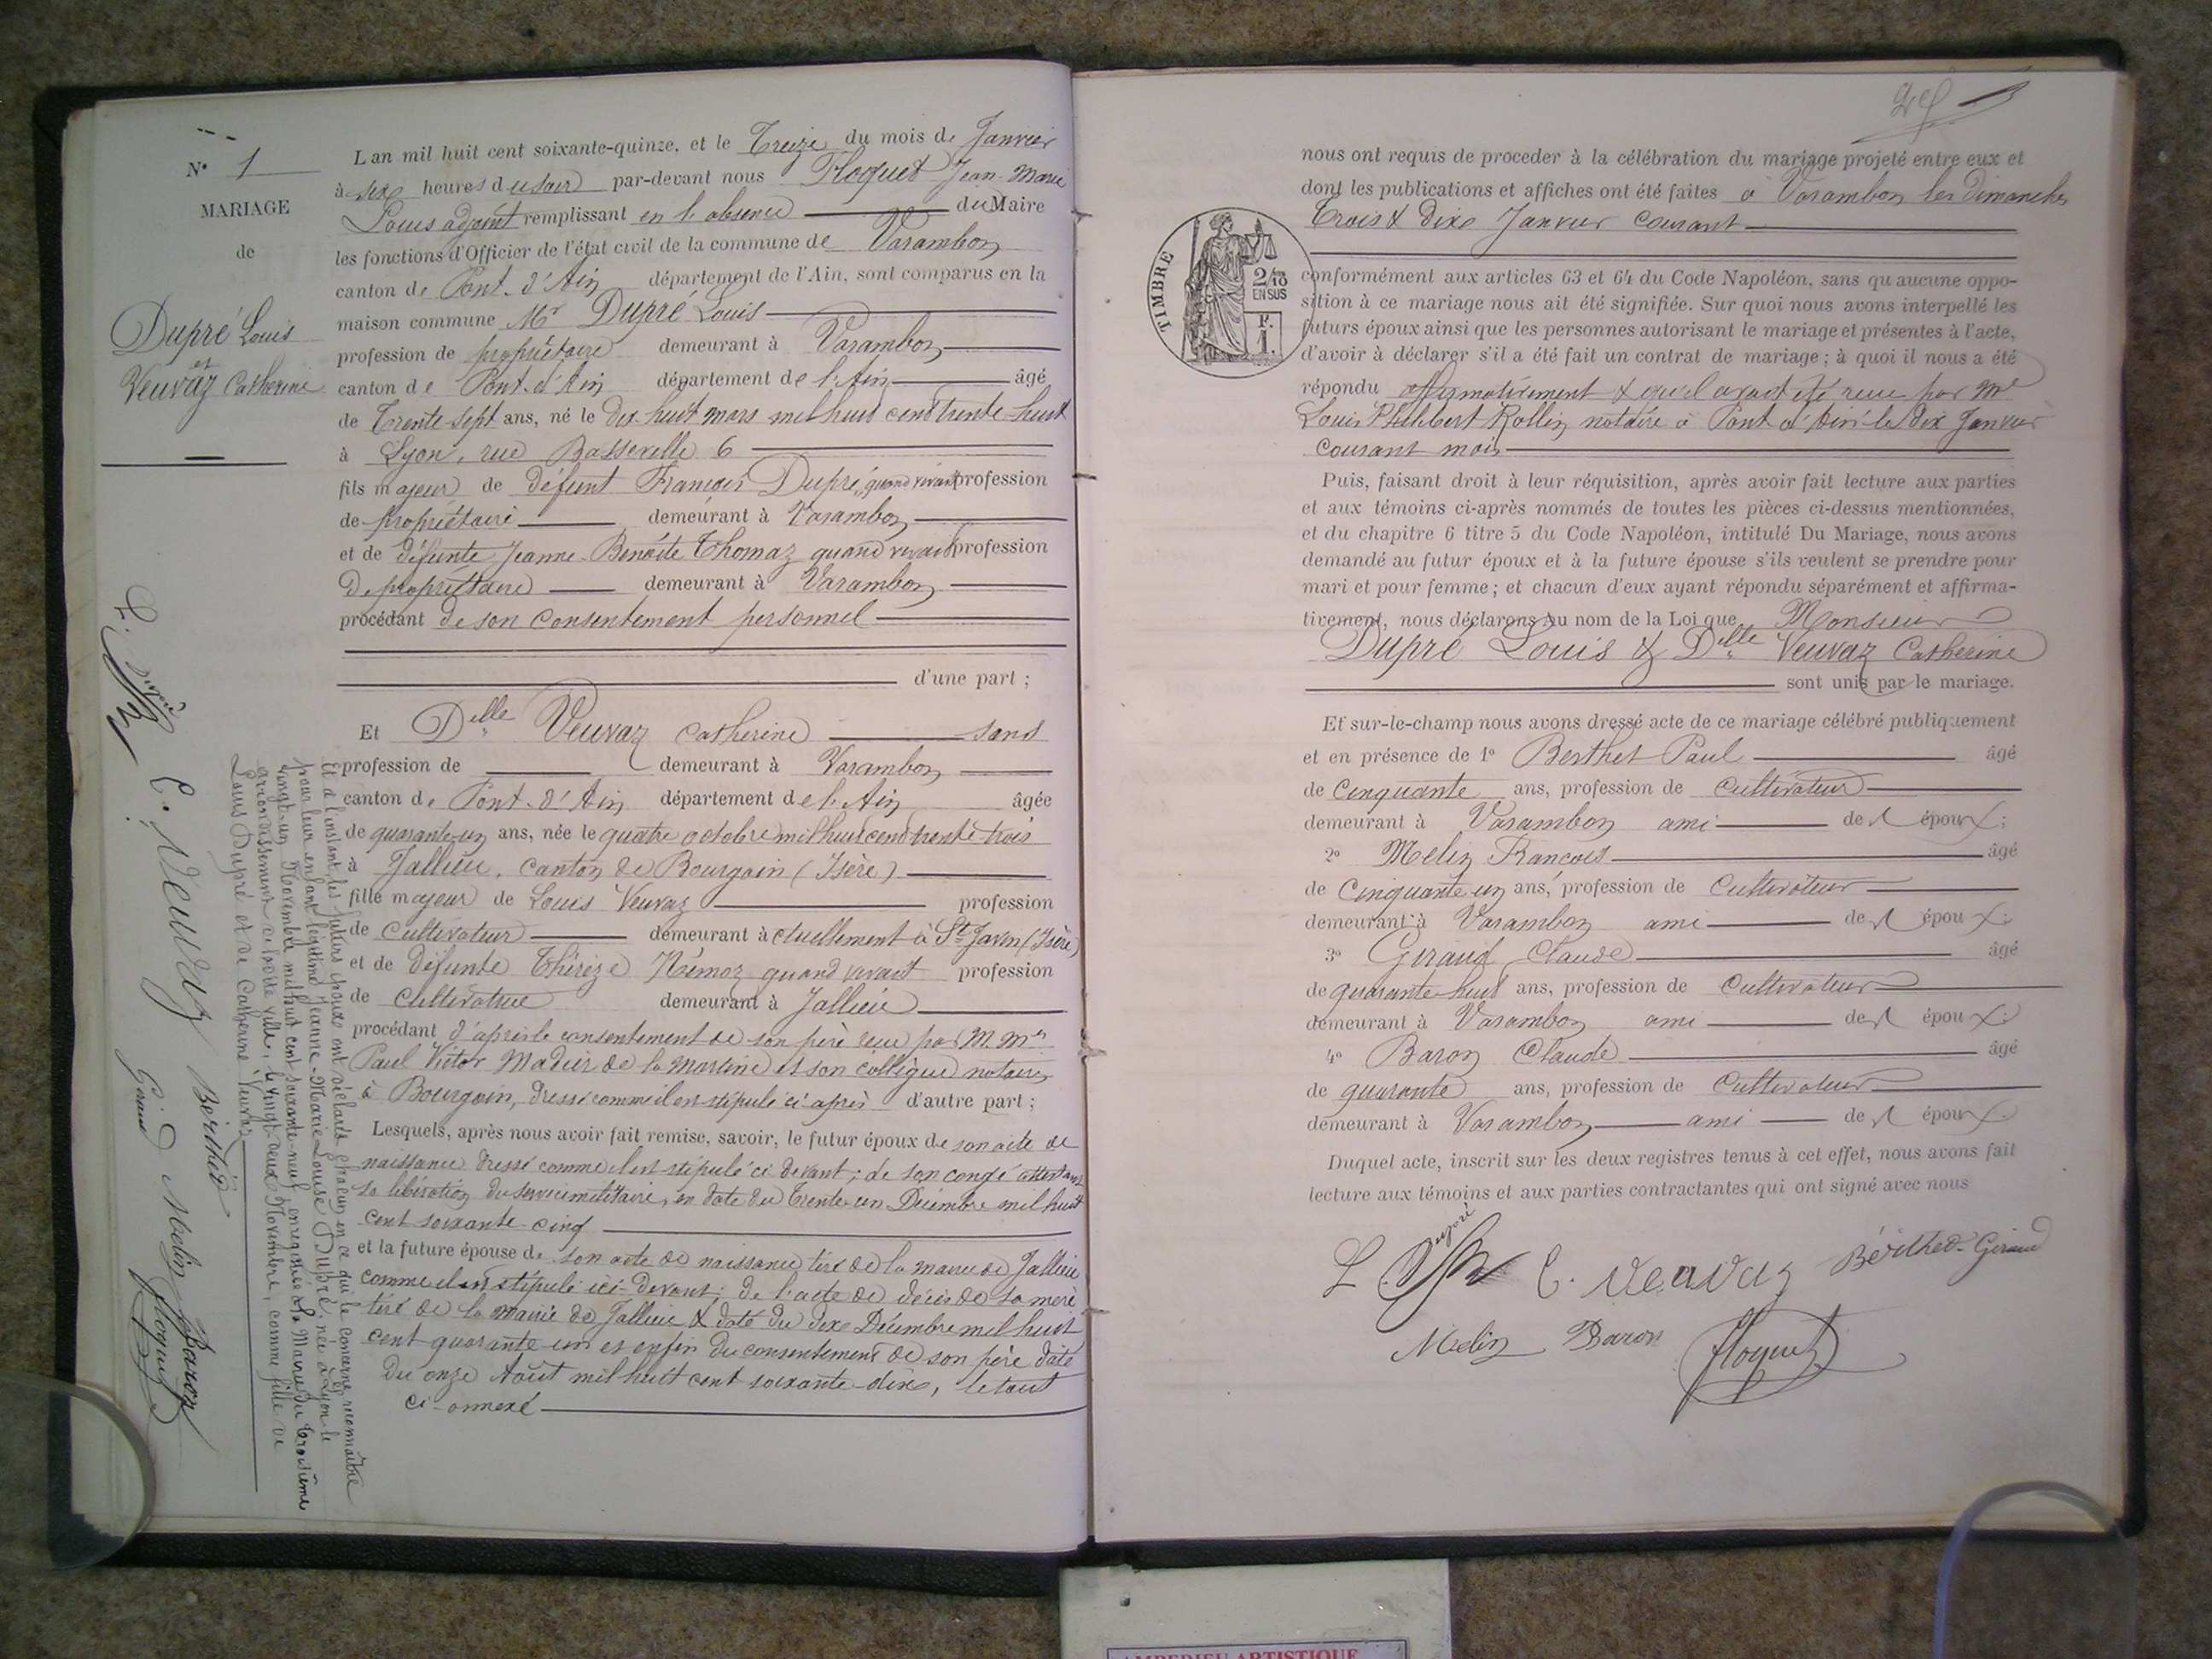 N° 1
MARIAGE
de
Dupré Louis
et
Veuvaz Catherine
L'an mil huit cent soixante-quinze, et le Treize du mois de Janvier
à six heures du soir par-devant nous Floquet Jean Marie
Louis adjoint remplissant en l'absence du Maire
les fonctions d'Officier de l'état civil de la commune de Varambon
canton de Pont-d'Ain département de l'Ain, sont comparus en la
maison commune Mr Dupré Louis
profession de propriétaire demeurant à Varambon
canton de Pont-d'Ain département de l'Ain âgé
de Trente-sept ans, né le dix-huit mars mil huit cent trente-huit
à Lyon, rue Basseville 6
fils majeur de défunt François Dupré, quand vivait profession
de propriétaire demeurant à Varambon
et de défunte Jeanne-Benoite Thomaz quand vivait profession
De propriétaire demeurant à Varambon
procédant de son consentement personnel
d'une part ;
Et Delle Veuvaz Catherine sans
profession de demeurant à Varambon
canton de Pont-d'Ain département de l'Ain âgée
de quarante-un ans, née le quatre octobre mil huit cent trente-trois
à Jallieu, canton de Bourgoin (Isère)
fille majeur de Louis Veuvaz profession
de Cultivateur demeurant actuellement à St Savin (Isère)
et de défunte Thérèze Némoz quand vivait profession
de cultivatrice demeurant à Jallieu
procédant d'après le consentement de son père reçu par M. Mes
Paul Victor Madier de la Martine et son collègue notaires
à Bourgoin, dressé comme il est stipulé ci après d'autre part ;
Lesquels, après nous avoir fait remise, savoir, le futur époux de son acte de
naissance dressé comme il est stipulé ci devant ; de son congé attestant
sa libération du service militaire, en date du Trente-un Décembre mil huit
cent soixante-cinq
et la future épouse de son acte de naissance tiré de la mairie de Jallieu
comme il est stipulé ici-devant ; de l'acte de décès de sa mère
tiré de la mairie de Jallieu & daté du dix Décembre mil huit
cent quarante-un et enfin du consentement de son père daté
Du onze Août mil huit cent soixante-dix, le tout
ci-annexé
Et à l'instant les futurs époux ont déclaré chacun en ce qui le concerne, reconnaître
pour leur enfant légitime Jeanne-Marie-Louise Dupré, née à Lyon le
vingt-un Novembre mil huit cent soixante-neuf, enregistrée à la Mairie du troisième
arrondissement de ladite ville, le vingt-deux Novembre, comme fille de
Louis Dupré et de Catherine Veuvaz
L. Dupré C. Veuvaz Berthet Giraud Melin Baron Floquet
nous ont requis de procéder à la célébration du mariage projeté entre eux et
dont les publications et affiches ont été faites à Varambon les Dimanches
Trois & dix Janvier courant
TIMBRE
2/10
EN SUS
F.
1.
conformément aux articles 63 et 64 du Code Napoléon, sans qu'aucune oppo-
sition à ce mariage nous ait été signifiée. Sur quoi nous avons interpellé les
futurs époux ainsi que les personnes autorisant le mariage et présentes à l'acte,
d'avoir à déclarer s'il a été fait un contrat de mariage ; à quoi il nous a été
répondu affirmativement & qu'il avait été reçu par Me
Louis Philibert Rollin notaire à Pont d'Ain le dix Janvier
courant mois
Puis, faisant droit à leur réquisition, après avoir fait lecture aux parties
et aux témoins ci-après nommés de toutes les pièces ci-dessus mentionnées,
et du chapitre 6 titre 5 du Code Napoléon, intitulé Du Mariage, nous avons
demandé au futur époux et à la future épouse s'ils veulent se prendre pour
mari et pour femme ; et chacun d'eux ayant répondu séparément et affirma-
tivement, nous déclarons au nom de la Loi que Monsieur
Dupré Louis & Delle Veuvaz Catherine
sont unis par le mariage.
Et sur-le-champ nous avons dressé acte de ce mariage célébré publiquement
et en présence de 1° Berthet Paul âgé
de Cinquante ans, profession de Cultivateur
demeurant à Varambon ami de l'époux ;
2° Melin François âgé
de Cinquante-un ans, profession de Cultivateur
demeurant à Varambon ami de l'époux ;
3° Giraud Claude âgé
de quarante-huit ans, profession de Cultivateur
demeurant à Varambon ami de l'époux ;
4° Baron Claude âgé
de quarante ans, profession de Cultivateur
demeurant à Varambon ami de l'époux.
Duquel acte, inscrit sur les deux registres tenus à cet effet, nous avons fait
lecture aux témoins et aux parties contractantes qui ont signé avec nous
L. Dupré C. Veuvaz Berthet Giraud
Melin Baron Floquet
AMBERIEU ARTISTIQUE